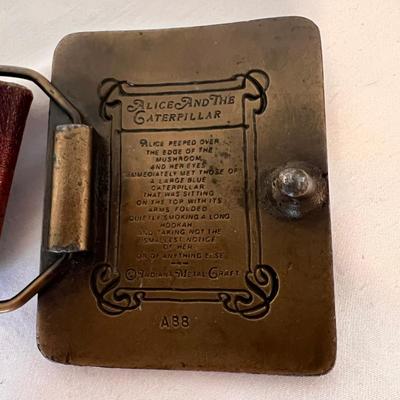 ALICE AND THE
CATERPILLAR
ALICE PEEPED OVER
THE EDGE OF THE
MUSHROOM,
AND HER EYES
IMMEDIATELY MET THOSE OF
A LARGE BLUE
CATERPILLAR
THAT WAS SITTING
ON THE TOP WITH ITS
ARMS FOLDED
QUIETLY SMOKING A LONG
HOOKAH
AND TAKING NOT THE
SMALLEST NOTICE
OF HER
OR OF ANYTHING ELSE
© INDIANA METAL CRAFT
A88